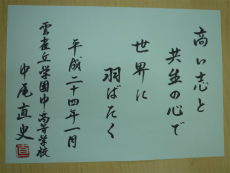 高い志と
共生の心で
世界に
羽ばたく
平成二十四年一月
雲雀丘学園中高等学校
中尾直史